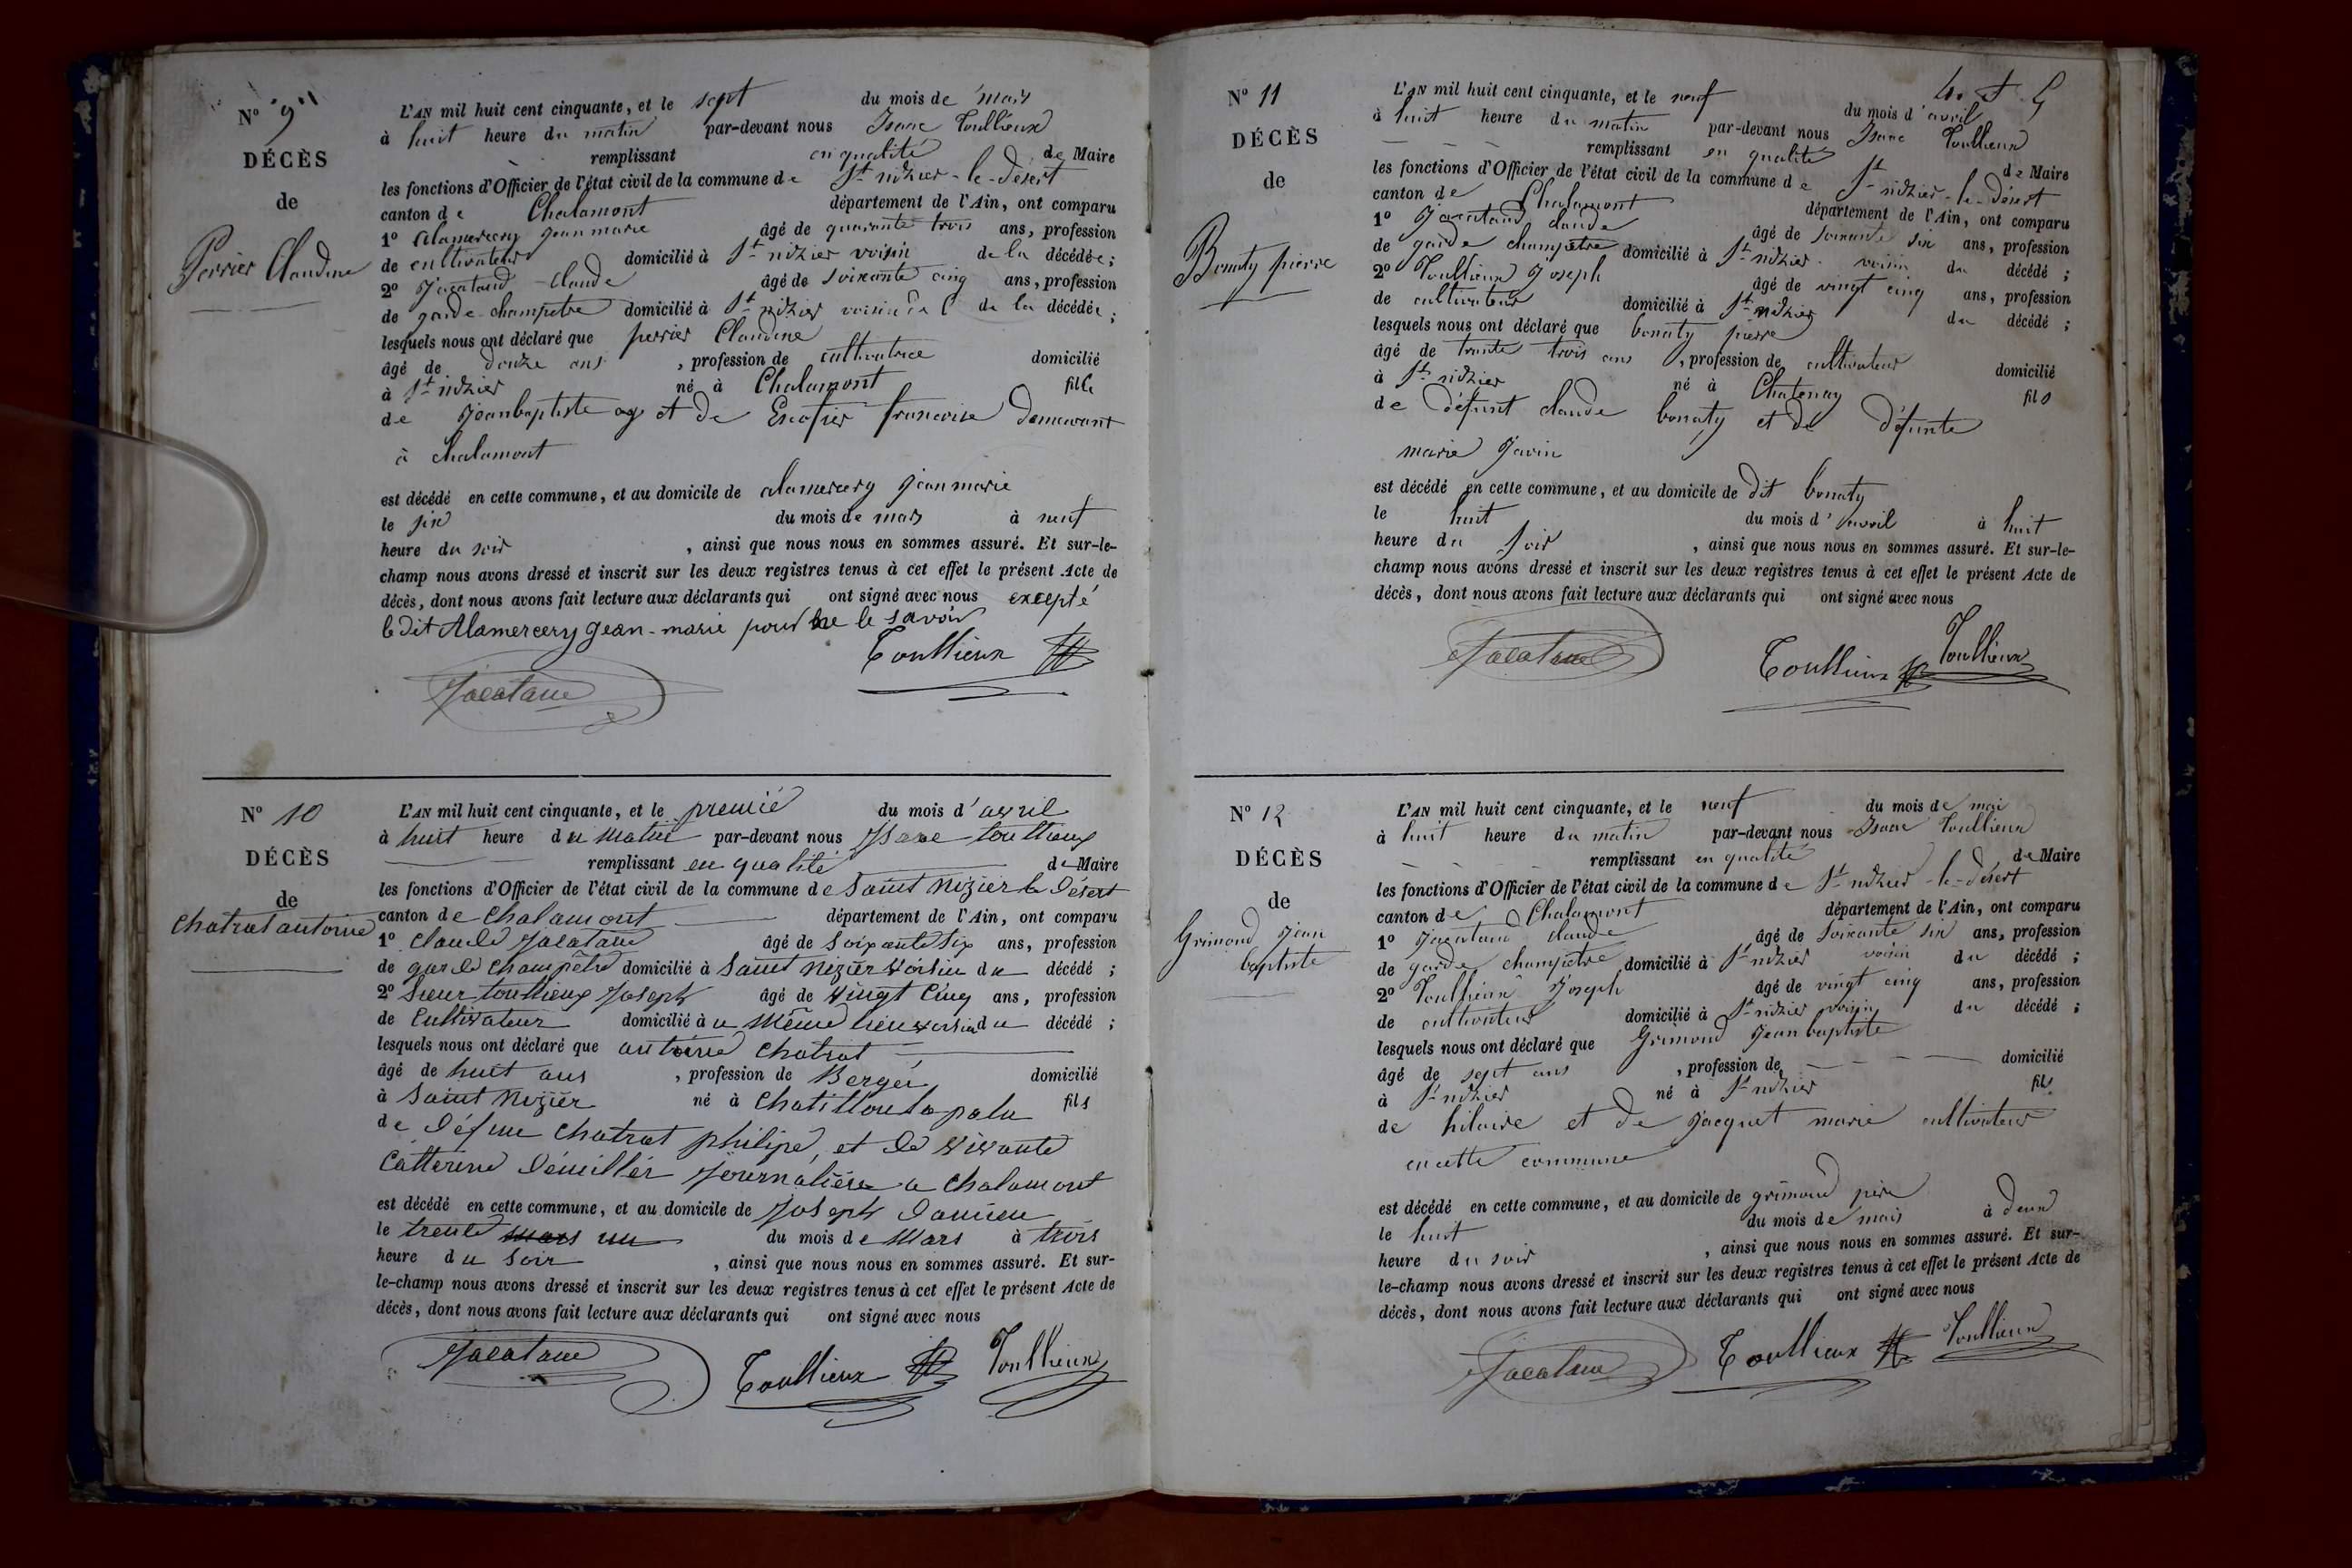 N° 9
DÉCÈS
de
Perrier Claudine
L'AN mil huit cent cinquante, et le sept du mois de mars
à huit heure du matin par-devant nous Isaac Toullieux
remplissant en qualité de Maire
les fonctions d'Officier de l'état civil de la commune de St nidzier-le-désert
canton de Chalamont département de l'Ain, ont comparu
1° alamercery jean marie âgé de quarante trois ans, profession
de cultivateur domicilié à St nidzier voisin de la décédée;
2° Jacataud Claude âgé de soixante cinq ans, profession
de garde-champetre domicilié à St nidzier voisin de la décédée;
lesquels nous ont déclaré que perrier Claudine
âgé de douze ans, profession de cultivatrice domicilié
à St nidzier né à Chalamont fille
de Jeanbaptiste et de Escofier francoise demeurant
à chalamont
est décédé en cette commune, et au domicile de alamercery jean marie
le six du mois de mars à neuf
heure du soir, ainsi que nous nous en sommes assuré. Et sur-le-
champ nous avons dressé et inscrit sur les deux registres tenus à cet effet le présent Acte de
décès, dont nous avons fait lecture aux déclarants qui ont signé avec nous excepté
le dit Alamercery Jean-marie pour ne le savoir
Toullieux
Jacataud
N° 10
DÉCÈS
de
chatrat antoine
L'AN mil huit cent cinquante, et le premié du mois d'avril
à huit heure du matin par-devant nous Isaac toullieux
remplissant en qualité de Maire
les fonctions d'Officier de l'état civil de la commune de Saint Nizier le Désert
canton de chalamont département de l'Ain, ont comparu
1° Claude Jacataud âgé de soixante six ans, profession
de garde champêtre domicilié à Saint Nizier voisin du décédé;
2° Sieur toullieux Joseph âgé de vingt cinq ans, profession
de Cultivateur domicilié à u même lieu voisin du décédé;
lesquels nous ont déclaré que antoine chatrat
âgé de huit ans, profession de Berger domicilié
à Saint Nizier né à Chatillon la palu fils
de défun chatrat philipe, et de vivante
Catterine Démillér Journalière a chalamont
est décédé en cette commune, et au domicile de Joseph Damien
le trente un du mois de Mars à trois
heure du soir, ainsi que nous nous en sommes assuré. Et sur-
le-champ nous avons dressé et inscrit sur les deux registres tenus à cet effet le présent Acte de
décès, dont nous avons fait lecture aux déclarants qui ont signé avec nous
Jacataud Toullieux Toullieux
N° 11
DÉCÈS
de
Bonaty pierre
L'AN mil huit cent cinquante, et le neuf du mois d'avril
à huit heure du matin par-devant nous Isaac Toullieux
remplissant en qualité de Maire
les fonctions d'Officier de l'état civil de la commune de St nidzier-le-désert
canton de Chalamont département de l'Ain, ont comparu
1° Jacataud claude âgé de soixante six ans, profession
de garde champetre domicilié à St nidzier voisin du décédé;
2° Toullieux Joseph âgé de vingt cinq ans, profession
de cultivateur domicilié à St nidzier du décédé;
lesquels nous ont déclaré que bonaty pierre
âgé de trente trois ans, profession de cultivateur domicilié
à St nidzier né à Chatenay fils
de défunt claude bonaty et de défunte
marie Javin
est décédé en cette commune, et au domicile de dit bonaty
le huit du mois d'avril à huit
heure du soir, ainsi que nous nous en sommes assuré. Et sur-le-
champ nous avons dressé et inscrit sur les deux registres tenus à cet effet le présent Acte de
décès, dont nous avons fait lecture aux déclarants qui ont signé avec nous
Jacataud Toullieux Toullieux
N° 12
DÉCÈS
de
Grimond Jean
baptiste
L'AN mil huit cent cinquante, et le neuf du mois de mai
à huit heure du matin par-devant nous Isaac Toullieux
remplissant en qualité de Maire
les fonctions d'Officier de l'état civil de la commune de St nidzier-le-désert
canton de Chalamont département de l'Ain, ont comparu
1° Jacataud claude âgé de soixante six ans, profession
de garde champetre domicilié à St nidzier voisin du décédé;
2° Toullieux Joseph âgé de vingt cinq ans, profession
de cultivateur domicilié à St nidzier voisin du décédé;
lesquels nous ont déclaré que Grimond Jean baptiste
âgé de sept ans, profession de domicilié
à St nidzier né à St nidzier fils
de hilaire et de jacquet marie cultivateur
en cette commune
est décédé en cette commune, et au domicile de grimond père
le huit du mois de mais à deux
heure du soir, ainsi que nous nous en sommes assuré. Et sur-
le-champ nous avons dressé et inscrit sur les deux registres tenus à cet effet le présent Acte de
décès, dont nous avons fait lecture aux déclarants qui ont signé avec nous
Jacataud Toullieux Toullieux